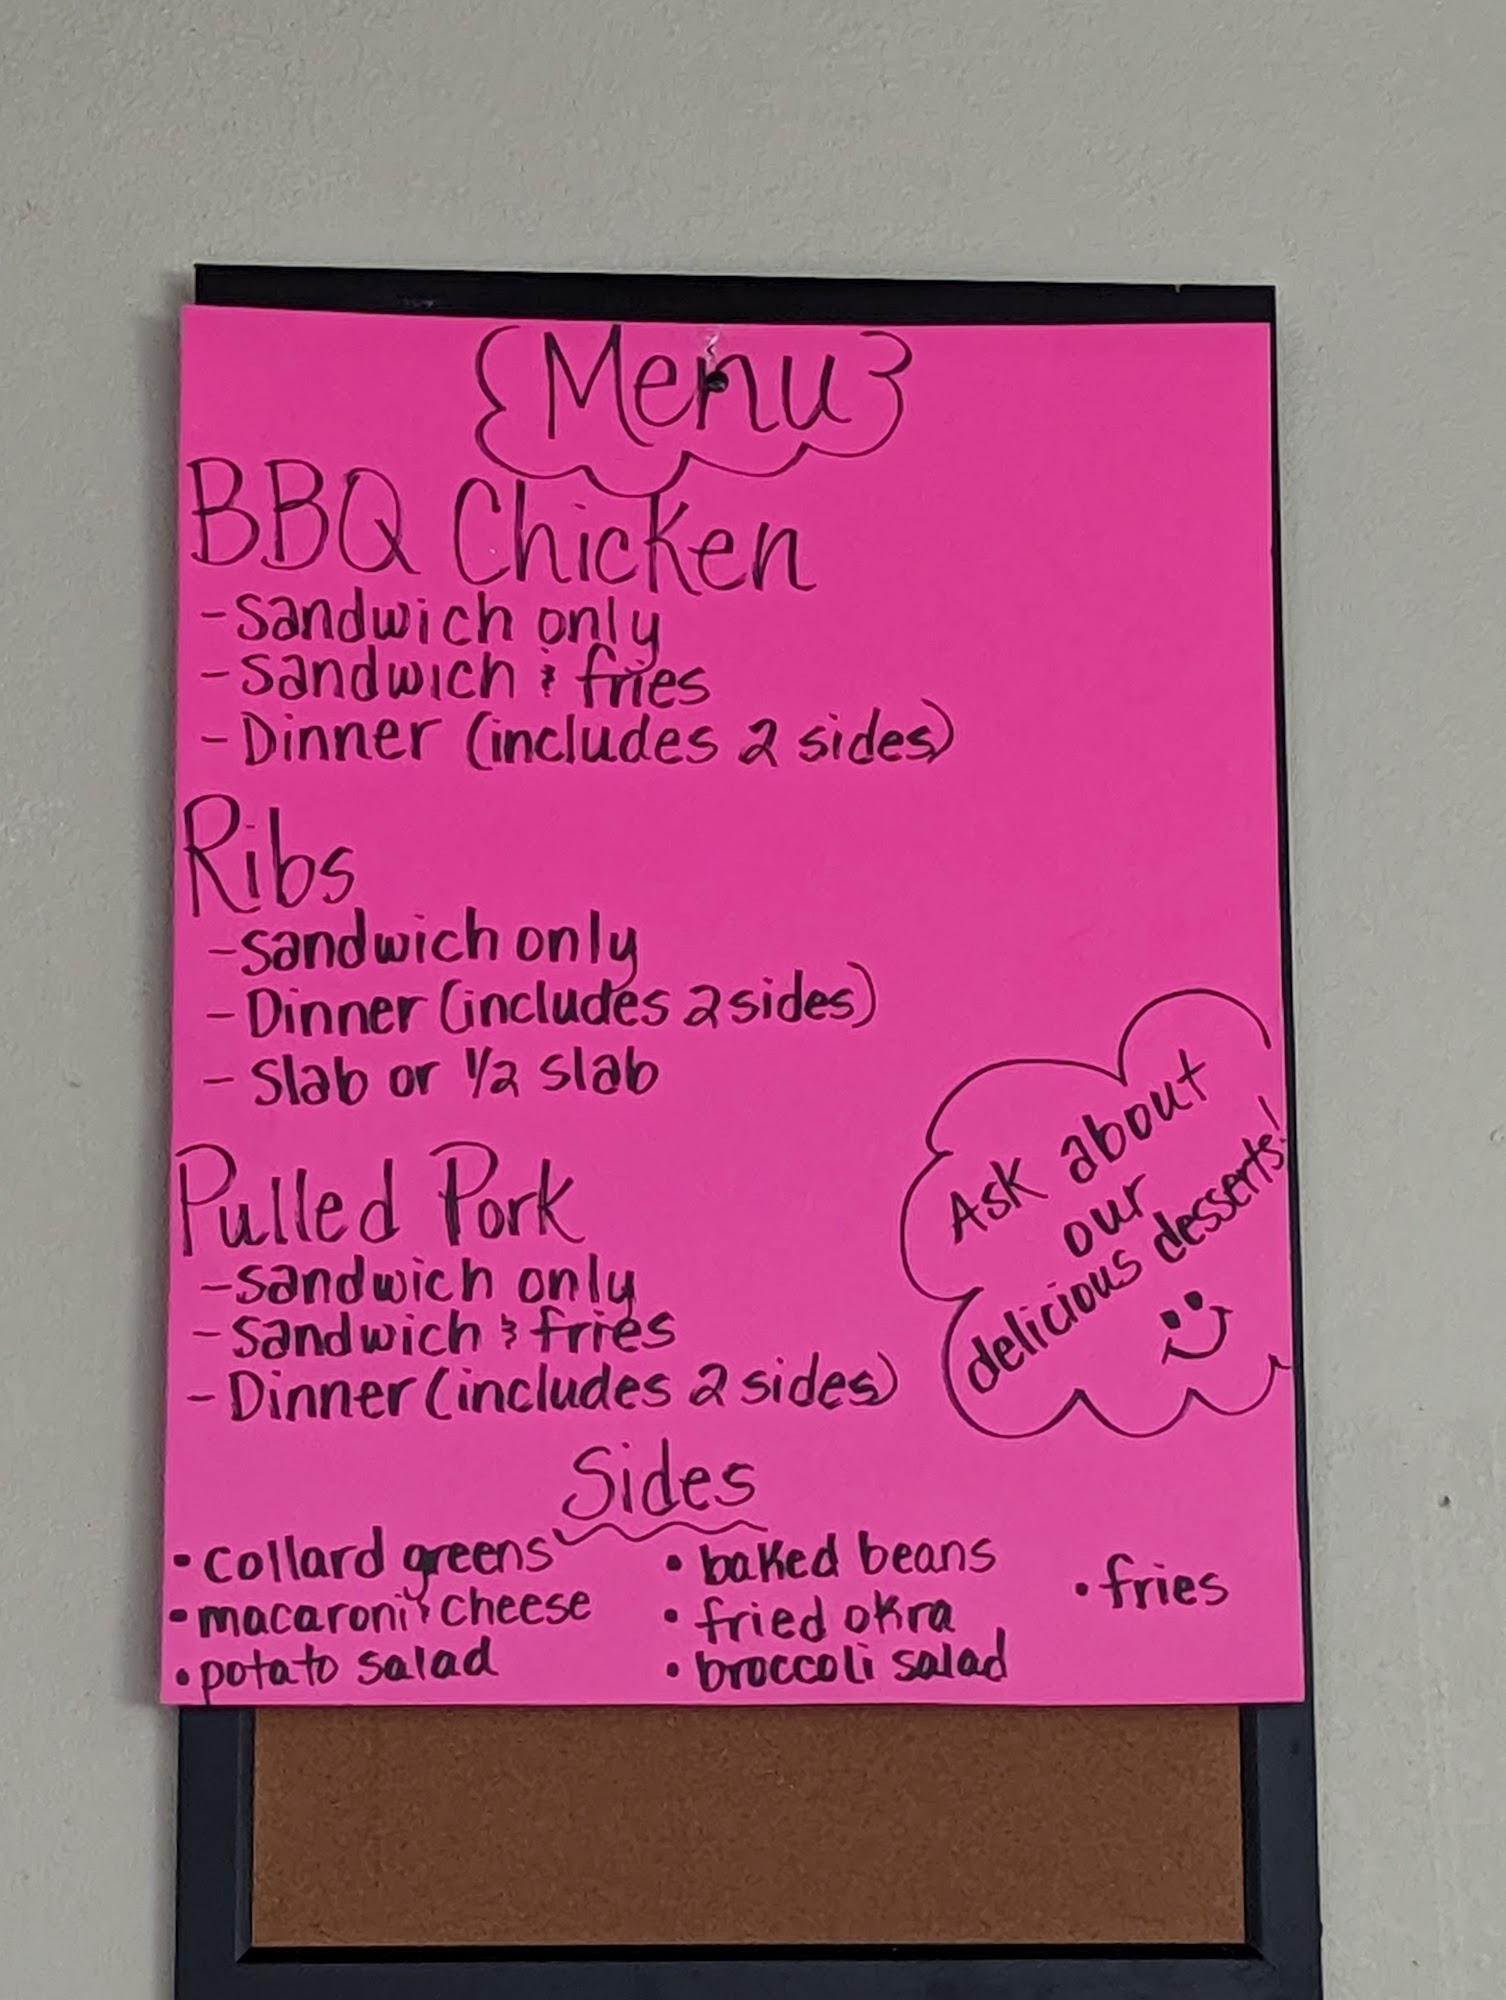 {Menu}
BBQ Chicken
- Sandwich only
- Sandwich & fries
- Dinner (includes 2 sides)
Ribs
- Sandwich only
- Dinner (includes 2 sides)
- Slab or 1/2 slab
Pulled Pork
- Sandwich only
- Sandwich & fries
- Dinner (includes 2 sides)
Ask about
our
delicious desserts!
Sides
• collard greens
• macaroni & cheese
• potato salad
• baked beans
• fried okra
• broccoli salad
• fries